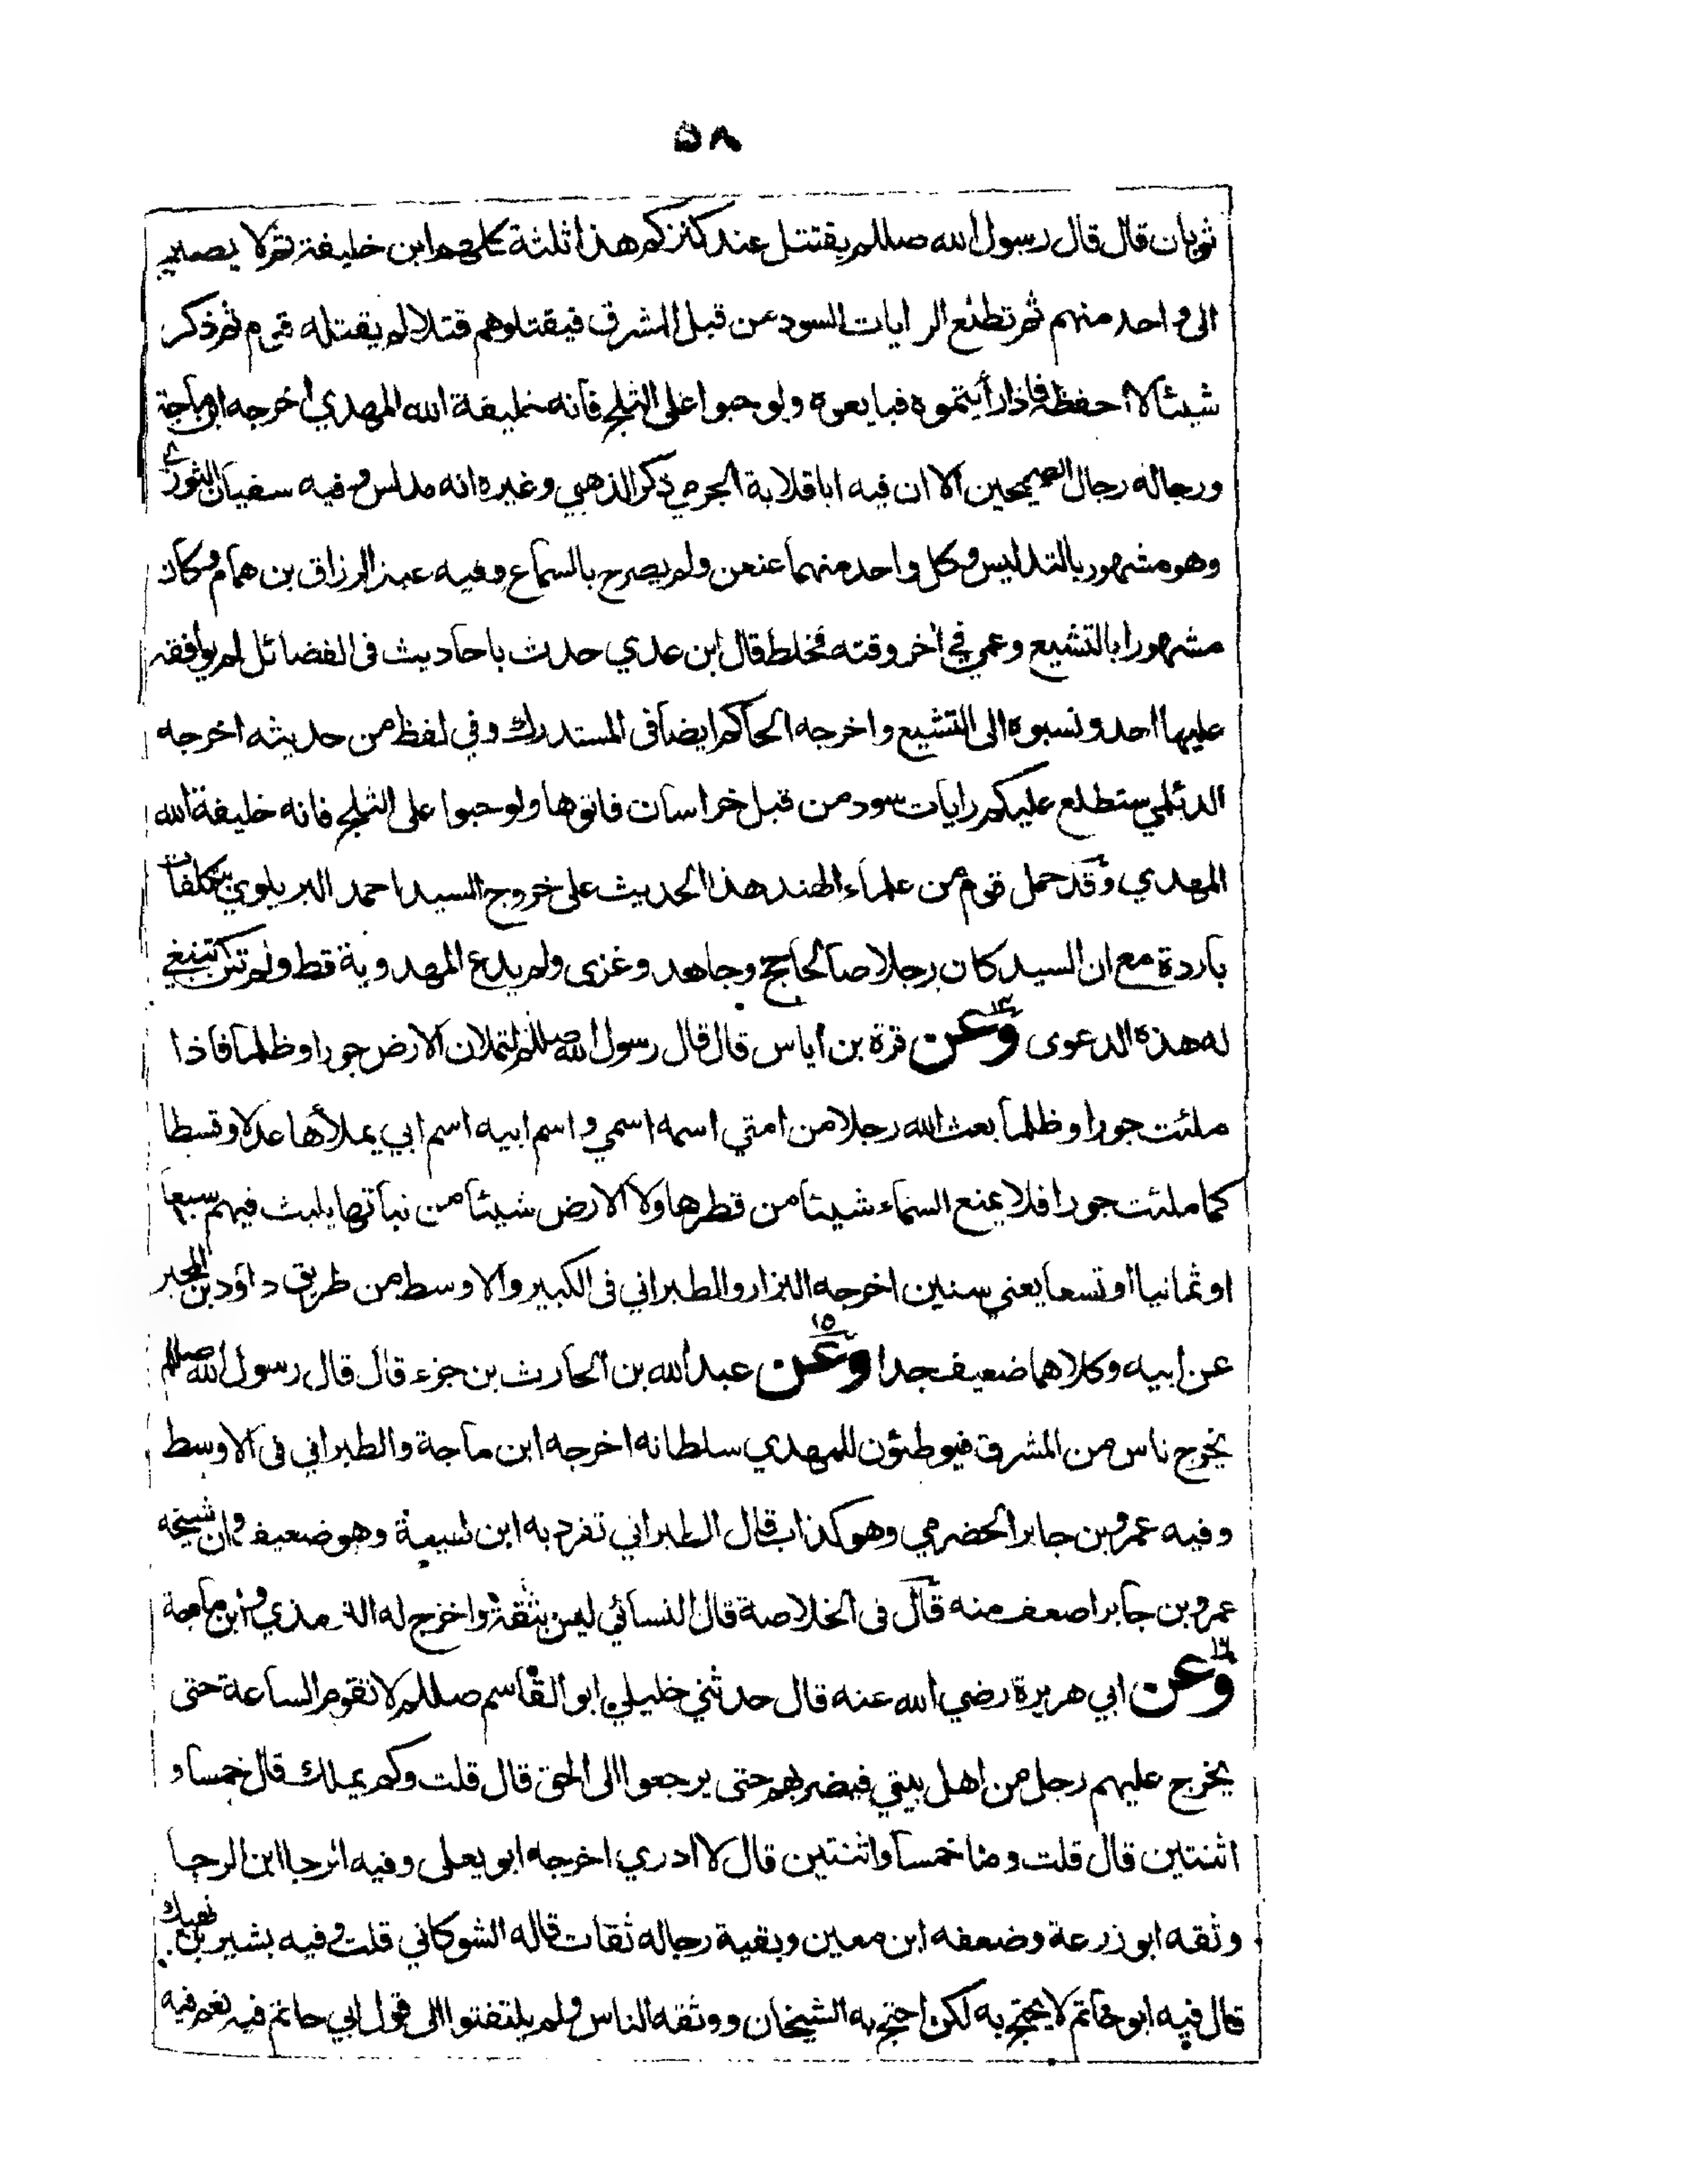 ٥٨
ثوبان قال قال رسول الله صللم يقتتل عند كنزكم هذا ثلثة كلهم ابن خليفة ثم لا يصير
الى واحد منهم ثم تطلع الرايات السود من قبل المشرق فيقتلوهم قتلا لم يقتله قوم ثم ذكر
شيئا لا احفظه فاذا رأيتموه فبايعوه ولو حبوا على الثلج فانه خليفة الله المهدي اخرجه ابن ماجة
ورجاله رجال الصحيحين الا ان فيه ابا قلابة الجرمي ذكر الذهبي وغيره انه مدلس وفيه سفيان الثوري
وهو مشهور بالتدليس وكل واحد منهما عنعن ولم يصرح بالسماع وفيه عبد الرزاق بن همام وكان
مشهورا بالتشيع وعمي في اخر وقته فخلط قال ابن عدي حدث باحاديث فى الفضائل لم يوافقه
عليها احد ونسبوه الى التشيع واخرجه الحاكم ايضا فى المستدرك وفي لفظ من حديثه اخرجه
الدئلمي ستطلع عليكم رايات سود من قبل خراسان فاتوها ولو حبوا على الثلج فانه خليفة الله
المهدي وقد حمل قوم من علماء الهند هذا الحديث على خروج السيد احمد البريلوي بتكلفات
باردة مع ان السيد كان رجلا صالحا حج وجاهد وغزى ولم يدع المهدوية قط ولم تكن تنبغي
له هذه الدعوى وعن قرة بن اياس قال قال رسول الله صللم لتملان الارض جورا وظلما فاذا
ملئت جورا وظلما بعث الله رجلا من امتي اسمه اسمي واسم ابيه اسم ابي يملأها عدلا وقسطا
كما ملئت جورا فلا يمنع السماء شيئا من قطرها ولا الارض شيئا من نباتها يلبث فيهم سبعا
او ثمانيا او تسعا يعني سنين اخرجه البزار والطبراني فى الكبير والاوسط من طريق داؤد بن المحبر
عن ابيه وكلاهما ضعيف جدا ١٥ وعن عبد الله بن الحارث بن جزء قال قال رسول الله صللم
يخرج ناس من المشرق فيوطئون للمهدي سلطانه اخرجه ابن ماجة والطبراني فى الاوسط
وفيه عمرو بن جابر الحضرمي وهو كذاب قال الطبراني تفرد به ابن لهيعة وهو ضعيف وان شيخه
عمرو بن جابر اضعف منه قال فى الخلاصة قال النسائي ليس بثقة واخرج له الترمذي وابن ماجة
١٦ وعن ابي هريرة رضي الله عنه قال حدثني خليلي ابو القاسم صللم لا تقوم الساعة حتى
يخرج عليهم رجل من اهل بيتي فيضربهم حتى يرجعوا الى الحق قال قلت وكم يملك قال خمسا و
اثنتين قال قلت وما خمسا واثنتين قال لا ادري اخرجه ابو يعلى وفيه الرجا ابن الرجا
وثقه ابو زرعة وضعفه ابن معين وبقية رجاله ثقات قاله الشوكاني قلت وفيه بشير بن نهيك
قال فيه ابو حاتم لا يحتج به لكن احتج به الشيخان ووثقه الناس ولم يلتفتوا الى قول ابي حاتم فيه نعم فيه